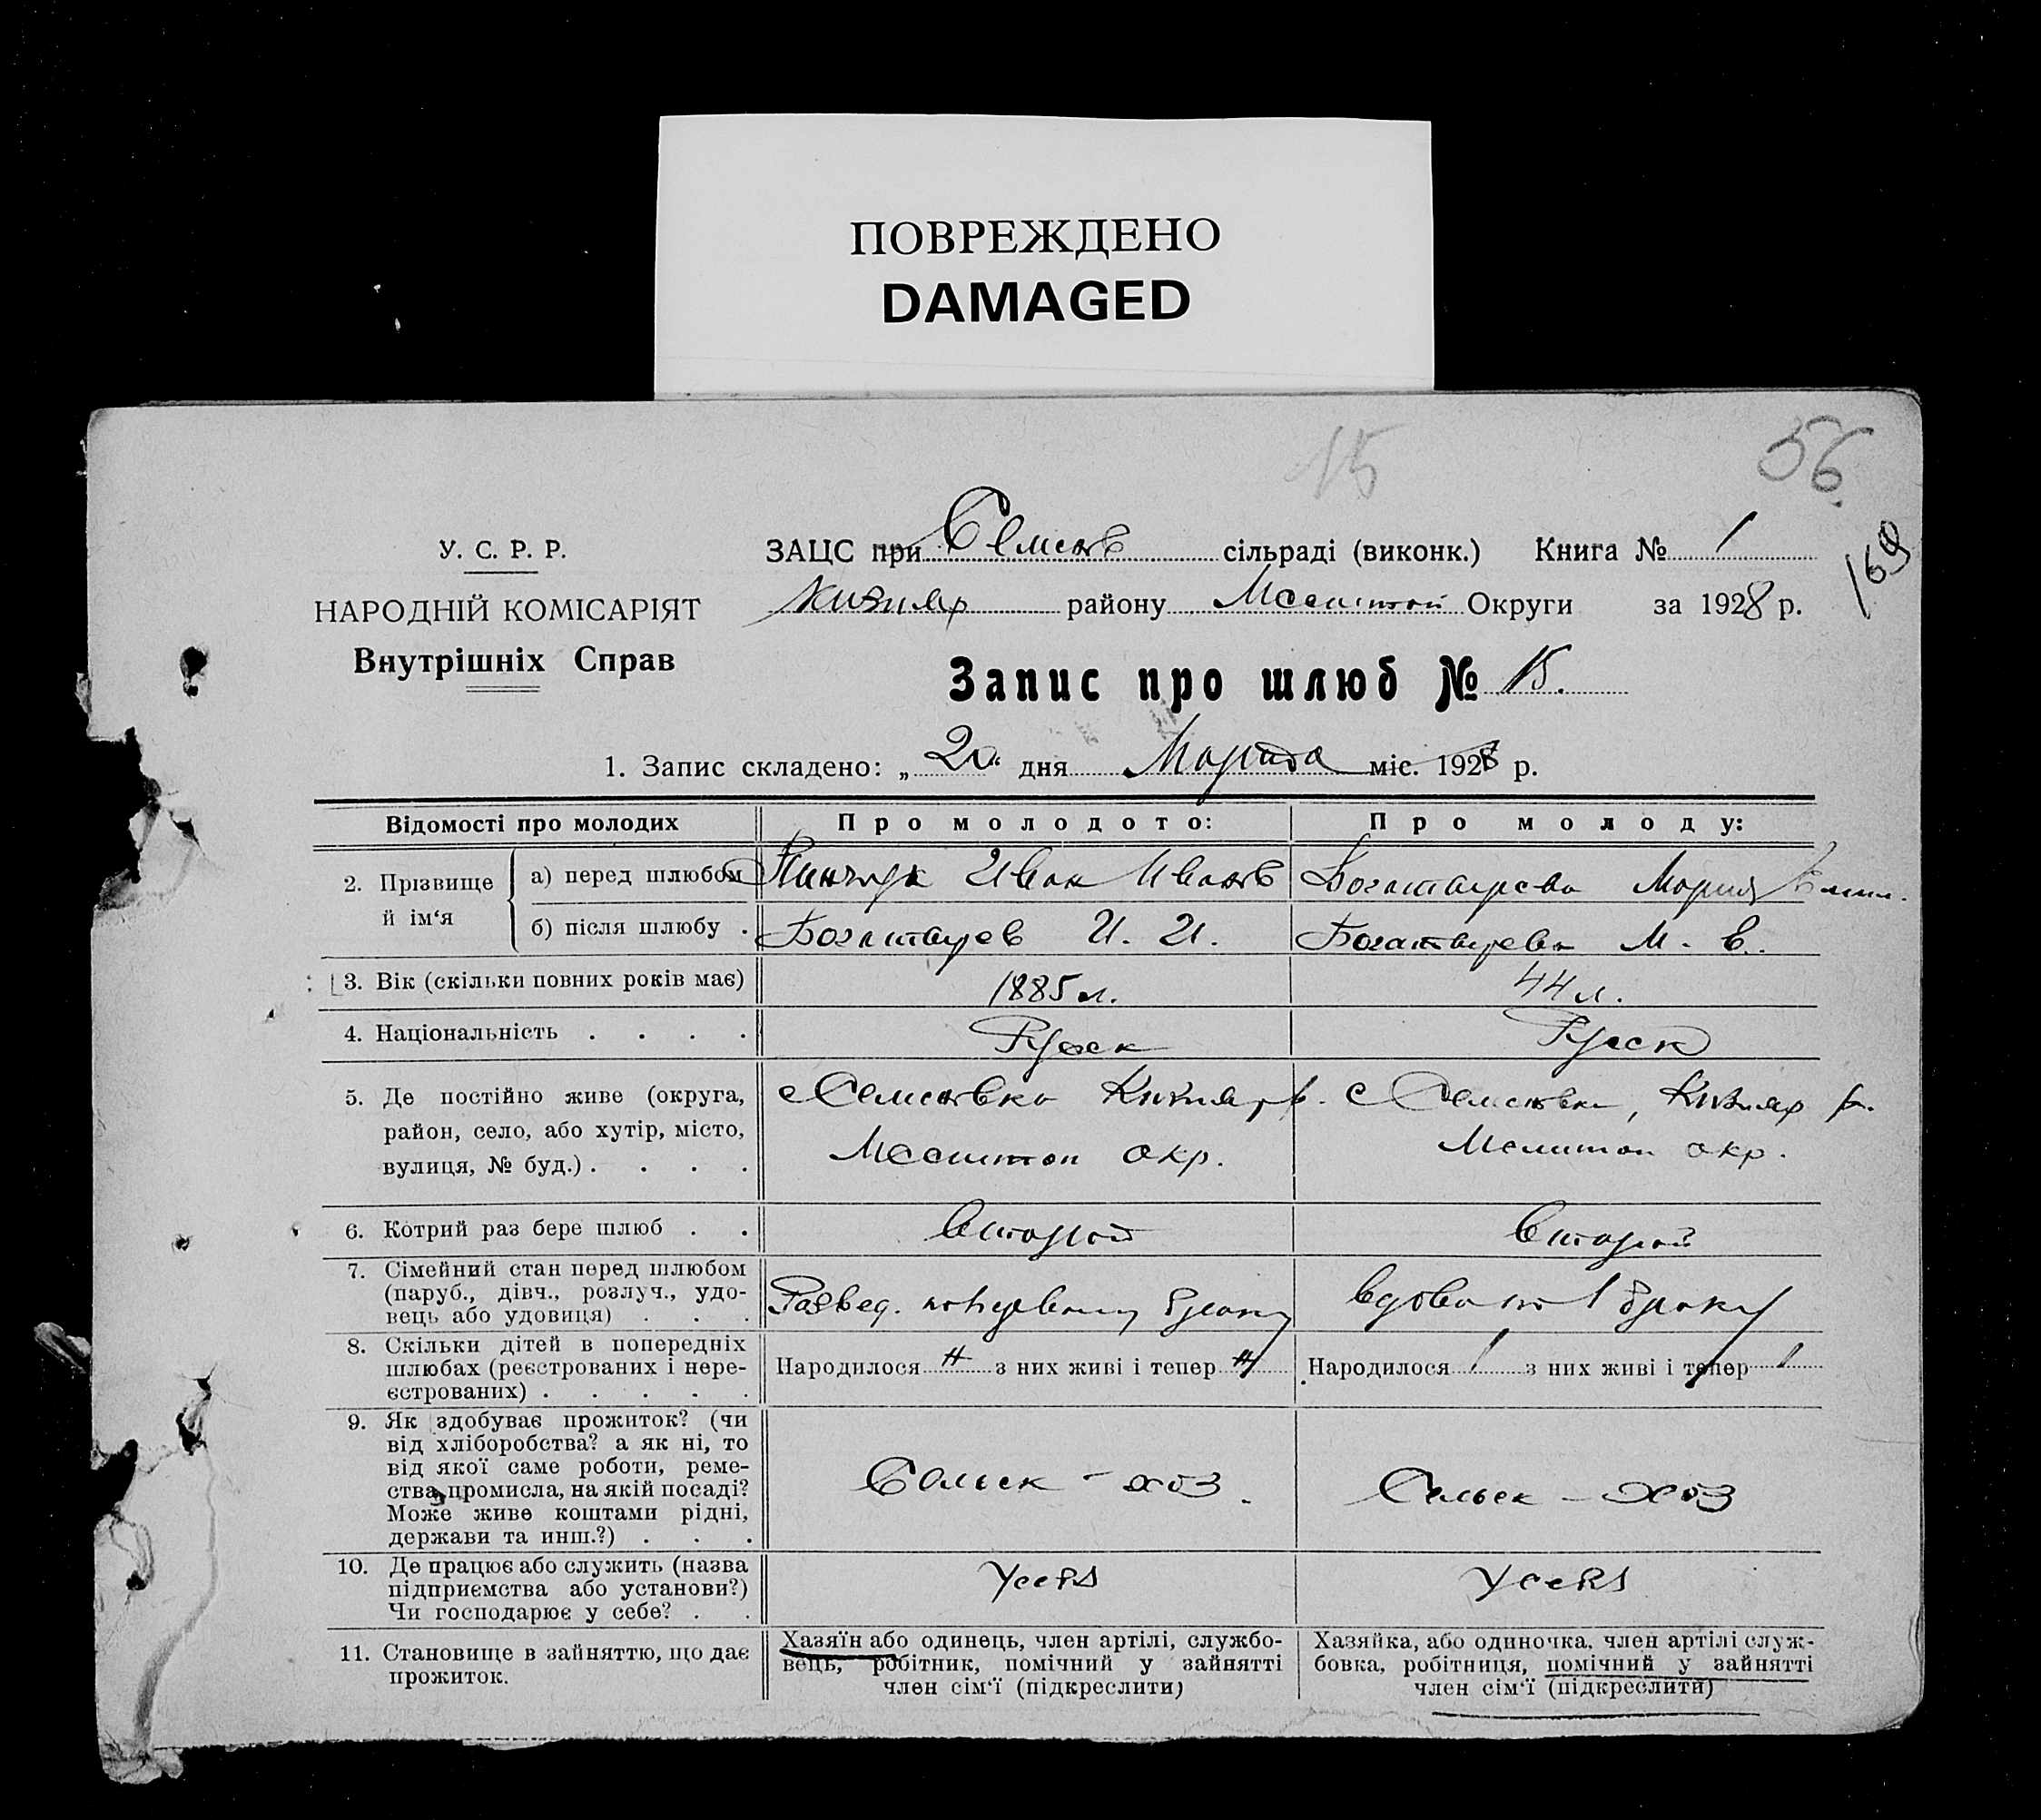 ПОВРЕЖДЕНО
DAMAGED
15
56
169
У. С. Р. Р.
НАРОДНІЙ КОМІСАРІЯТ
Внутрішніх Справ
ЗАЦС при Семенов сільраді (виконк.) Книга № 1
Кизияр району Мелитоп Округи за 1928 р.
Запис про шлюб № 15.
1. Запис складено: „20" дня Марта міс. 1928 р.
Відомості про молодих Про молодого: Про молоду:
2. Прізвище й ім'я
а) перед шлюбом Пинчук Иван Иванов Богатырева Мария
б) після шлюбу Богатырев И. И. Богатырева М. Е.
3. Вік (скільки повних років має) 1885 л. 44 л.
4. Національність . . . . Русск Русск
5. Де постійно живе (округа,
район, село, або хутір, місто,
вулиця, № буд.) . . . .
с Семеновка Кизияр р.
Мелитоп окр.
с Семеновка, Кизияр р.
Мелитоп окр.
6. Котрий раз бере шлюб . . Второй Второй
7. Сімейний стан перед шлюбом
(паруб., дівч., розлуч., удо-
вець або удовиця) . . .
Развед. по первому браку
вдова по 1 браку
8. Скільки дітей в попередніх
шлюбах (реєстрованих і нере-
єстрованих) . . . . .
Народилося 4 з них живі і тепер 4
Народилося 1 з них живі і тепер 1
9. Як здобуває прожиток? (чи
від хліборобства? а як ні, то
від якої саме роботи, реме-
ства, промисла, на якій посаді?
Може живе коштами рідні,
держави та инш.?) . . .
Сельск - хоз.
Сельск - хоз
10. Де працює або служить (назва
підприємства або установи?)
Чи господарює у себе? . .
У себя
У себя
11. Становище в зайняттю, що дає
прожиток.
Хазяїн або одинець, член артілі, службо-
вець, робітник, помічний у зайнятті
член сім'ї (підкреслити)
Хазяйка, або одиночка, член артілі служ-
бовка, робітниця, помічний у зайнятті
член сім'ї (підкреслити)